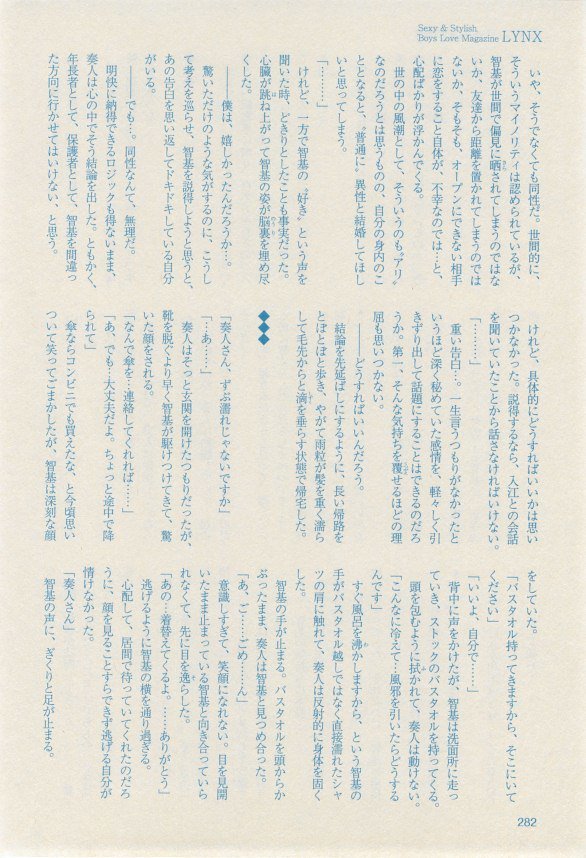 Sexy & Stylish
Boys Love Magazine LYNX
いや、そうでなくても同性だ。世間的に、
そういうマイノリティは認められているが、
智基が世間で偏見に晒されてしまうのではな
いか、友達から距離を置かれてしまうのでは
ないか、そもそも、オープンにできない相手
に恋をすること自体が、不幸なのでは…と、
心配ばかりが浮かんでくる。
世の中の風潮として、そういうのも〝アリ〟
なのだろうとは思うものの、自分の身内のこ
ととなると、〝普通に〟異性と結婚してほし
いと思ってしまう。
「………」
けれど、一方で智基の〝好き〟という声を
聞いた時、どきりとしたことも事実だった。
心臓が跳ね上がって智基の姿が脳裏を埋め尽
くした。
――僕は、嬉しかったんだろうか…。
驚いただけのような気がするのに、こうし
て考えを巡らせ、智基を説得しようと思うと、
あの告白を思い返してドキドキしている自分
がいる。
――でも…。同性なんて、無理だ。
明快に納得できるロジックも得ないまま、
奏人は心の中でそう結論を出した。ともかく、
年長者として、保護者として、智基を間違っ
た方向に行かせてはいけない、と思う。
けれど、具体的にどうすればいいかは思い
つかなかった。説得するなら、入江との会話
を聞いていたことから話さなければいけない。
「………」
重い告白…。一生言うつもりがなかったと
いうほど深く秘めていた感情を、軽々しく引
きずり出して話題にすることはできるのだろ
うか。第一、そんな気持ちを覆せるほどの理
屈も思いつかない。
――どうすればいいんだろう。
結論を先延ばしにするように、長い帰路を
とぼとぼと歩き、やがて雨粒が髪を重く濡ら
して毛先からと滴を垂らす状態で帰宅した。
◆◆◆
「奏人さん、ずぶ濡れじゃないですか」
「…あ……」
奏人はそっと玄関を開けたつもりだったが、
靴を脱ぐより早く智基が駆けつけてきて、驚
いた顔をされる。
「なんで傘を…連絡してくれれば……」
「あ、でも…大丈夫だよ。ちょっと途中で降
られて」
傘ならコンビニでも買えたな、と今頃思い
ついて笑ってごまかしたが、智基は深刻な顔
をしていた。
「バスタオル持ってきますから、そこにいて
ください」
「いいよ、自分で……」
背中に声をかけたが、智基は洗面所に走っ
ていき、ストックのバスタオルを持ってくる。
頭を包むように拭かれて、奏人は動けない。
「こんなに冷えて…風邪を引いたらどうする
んです」
すぐ風呂を沸かしますから、という智基の
手がバスタオル越しではなく直接濡れたシャ
ツの肩に触れて、奏人は反射的に身体を固く
した。
智基の手が止まる。バスタオルを頭からか
ぶったまま、奏人は智基と見つめ合った。
「あ、ご……ごめ……ん」
意識しすぎて、笑顔になれない。目を見開
いたまま止まっている智基と向き合っていら
れなくて、先に目を逸らした。
「あの…着替えてくるよ。……ありがとう」
逃げるように智基の横を通り過ぎる。
心配して、居間で待っていてくれたのだろ
うに、顔を見ることすらできず逃げる自分が
情けなかった。
「奏人さん」
智基の声に、ぎくりと足が止まる。
282